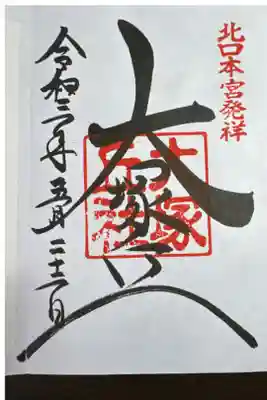 北口本宮発祥
大塚丘
大塚丘社
令和三年五月二十二日